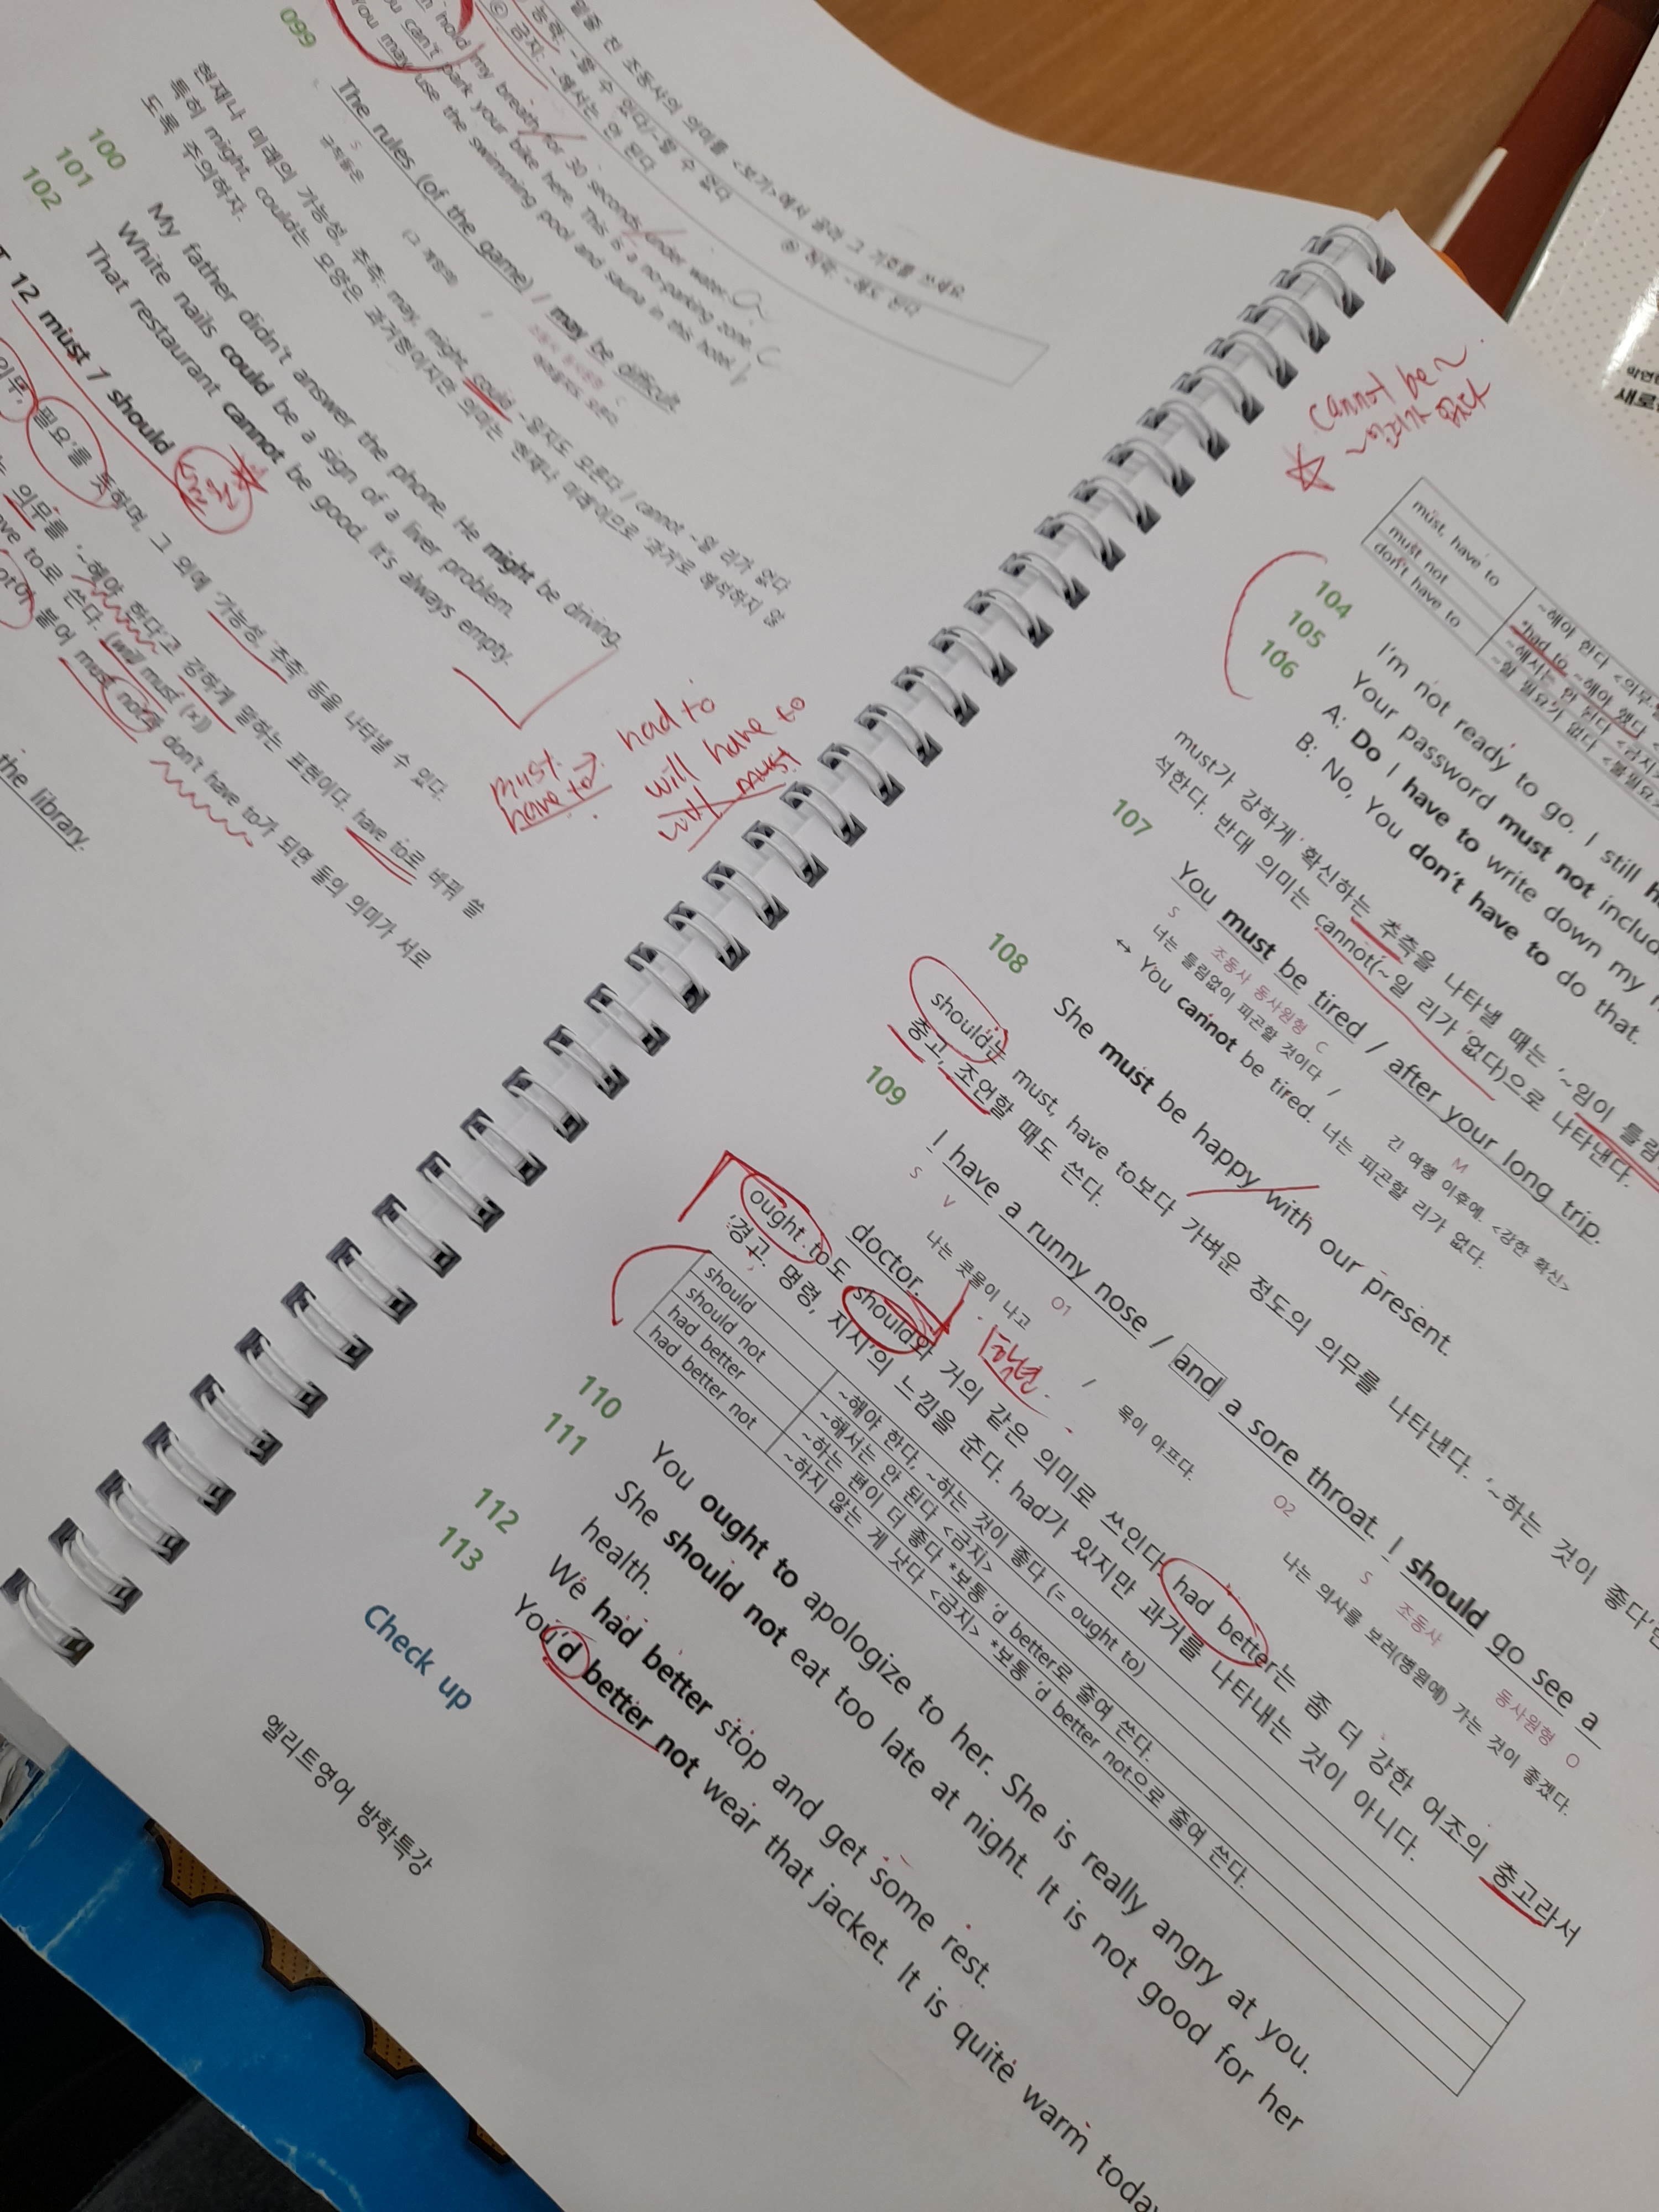 밑줄 친 조동사의 의미를 <보기>에서 골라 그 기호를 쓰세요
능력: ~할 수 있다/~할 수 없다
ⓑ 허락: ~해도 된다
ⓒ 금지: ~해서는 안 된다
hold my breath / for 30 seconds / under water. a
can't park your bike here. This is a no-parking zone. c
You may use the swimming pool and sauna in this hotel. b
099
The rules (of the game) / may be difficult.
S
규칙들은
(그 게임의)
어려울지도 모른다
현재나 미래의 가능성, 추측: may, might, could ~일지도 모른다 / cannot ~일 리가 없다
특히 might, could는 모양은 과거형이지만 의미는 현재나 미래이므로 과거로 해석하지 않
도록 주의하자.
100 My father didn't answer the phone. He might be driving.
101 White nails could be a sign of a liver problem.
102 That restaurant cannot be good. It's always empty.
12 must / should
의무, 필요'를 뜻하며, 그 외에 '가능성, 추측' 등을 나타낼 수 있다.
의무를 '~해야 한다'고 강하게 말하는 표현이다. have to로 바꿔 쓸
have to로 쓴다. (will must (x))
not이 붙어 must not과 don't have to가 되면 둘의 의미가 서로
the library.
must → had to
have to
will have to
will must
cannot be ~
☆ ~일리가 없다
must, have to
~해야 한다 <의무
*had to ~해야 했다
must not
~해서는 안 된다 <금지
don't have to
~할 필요가 없다 <불필요
104 I'm not ready to go. I still
105 Your password must not includ
106 A: Do I have to write down my
B: No, You don't have to do that.
must가 강하게 확신하는 추측을 나타낼 때는 '~임이 틀림
석한다. 반대 의미는 cannot(~일 리가 없다)으로 나타낸다.
107 You must be tired / after your long trip.
S 조동사 동사원형 C M
너는 틀림없이 피곤할 것이다 / 긴 여행 이후에. <강한 확신>
↔ You cannot be tired. 너는 피곤할 리가 없다.
108 She must be happy with our present.
should는 must, have to보다 가벼운 정도의 의무를 나타낸다. '~하는 것이 좋다'
충고, 조언할 때도 쓴다.
109 I have a runny nose / and a sore throat. I should go see a
S V O1 O2 S 조동사 동사원형 O
나는 콧물이 나고 / 목이 아프다. 나는 의사를 보러(병원에) 가는 것이 좋겠다.
doctor.
ought to도 should와 거의 같은 의미로 쓰인다. had better는 좀 더 강한 어조의 충고라서
'경고, 명령, 지시'의 느낌을 준다. had가 있지만 과거를 나타내는 것이 아니다.
should
~해야 한다, ~하는 것이 좋다 (= ought to)
should not
~해서는 안 된다 <금지>
had better
~하는 편이 더 좋다 *보통 'd better로 줄여 쓴다.
had better not
~하지 않는 게 낫다 <금지> *보통 'd better not으로 줄여 쓴다.
110 You ought to apologize to her. She is really angry at you.
111 She should not eat too late at night. It is not good for her
health.
112 We had better stop and get some rest.
113 You'd better not wear that jacket. It is quite warm today
Check up
엘리트영어 방학특강
새로